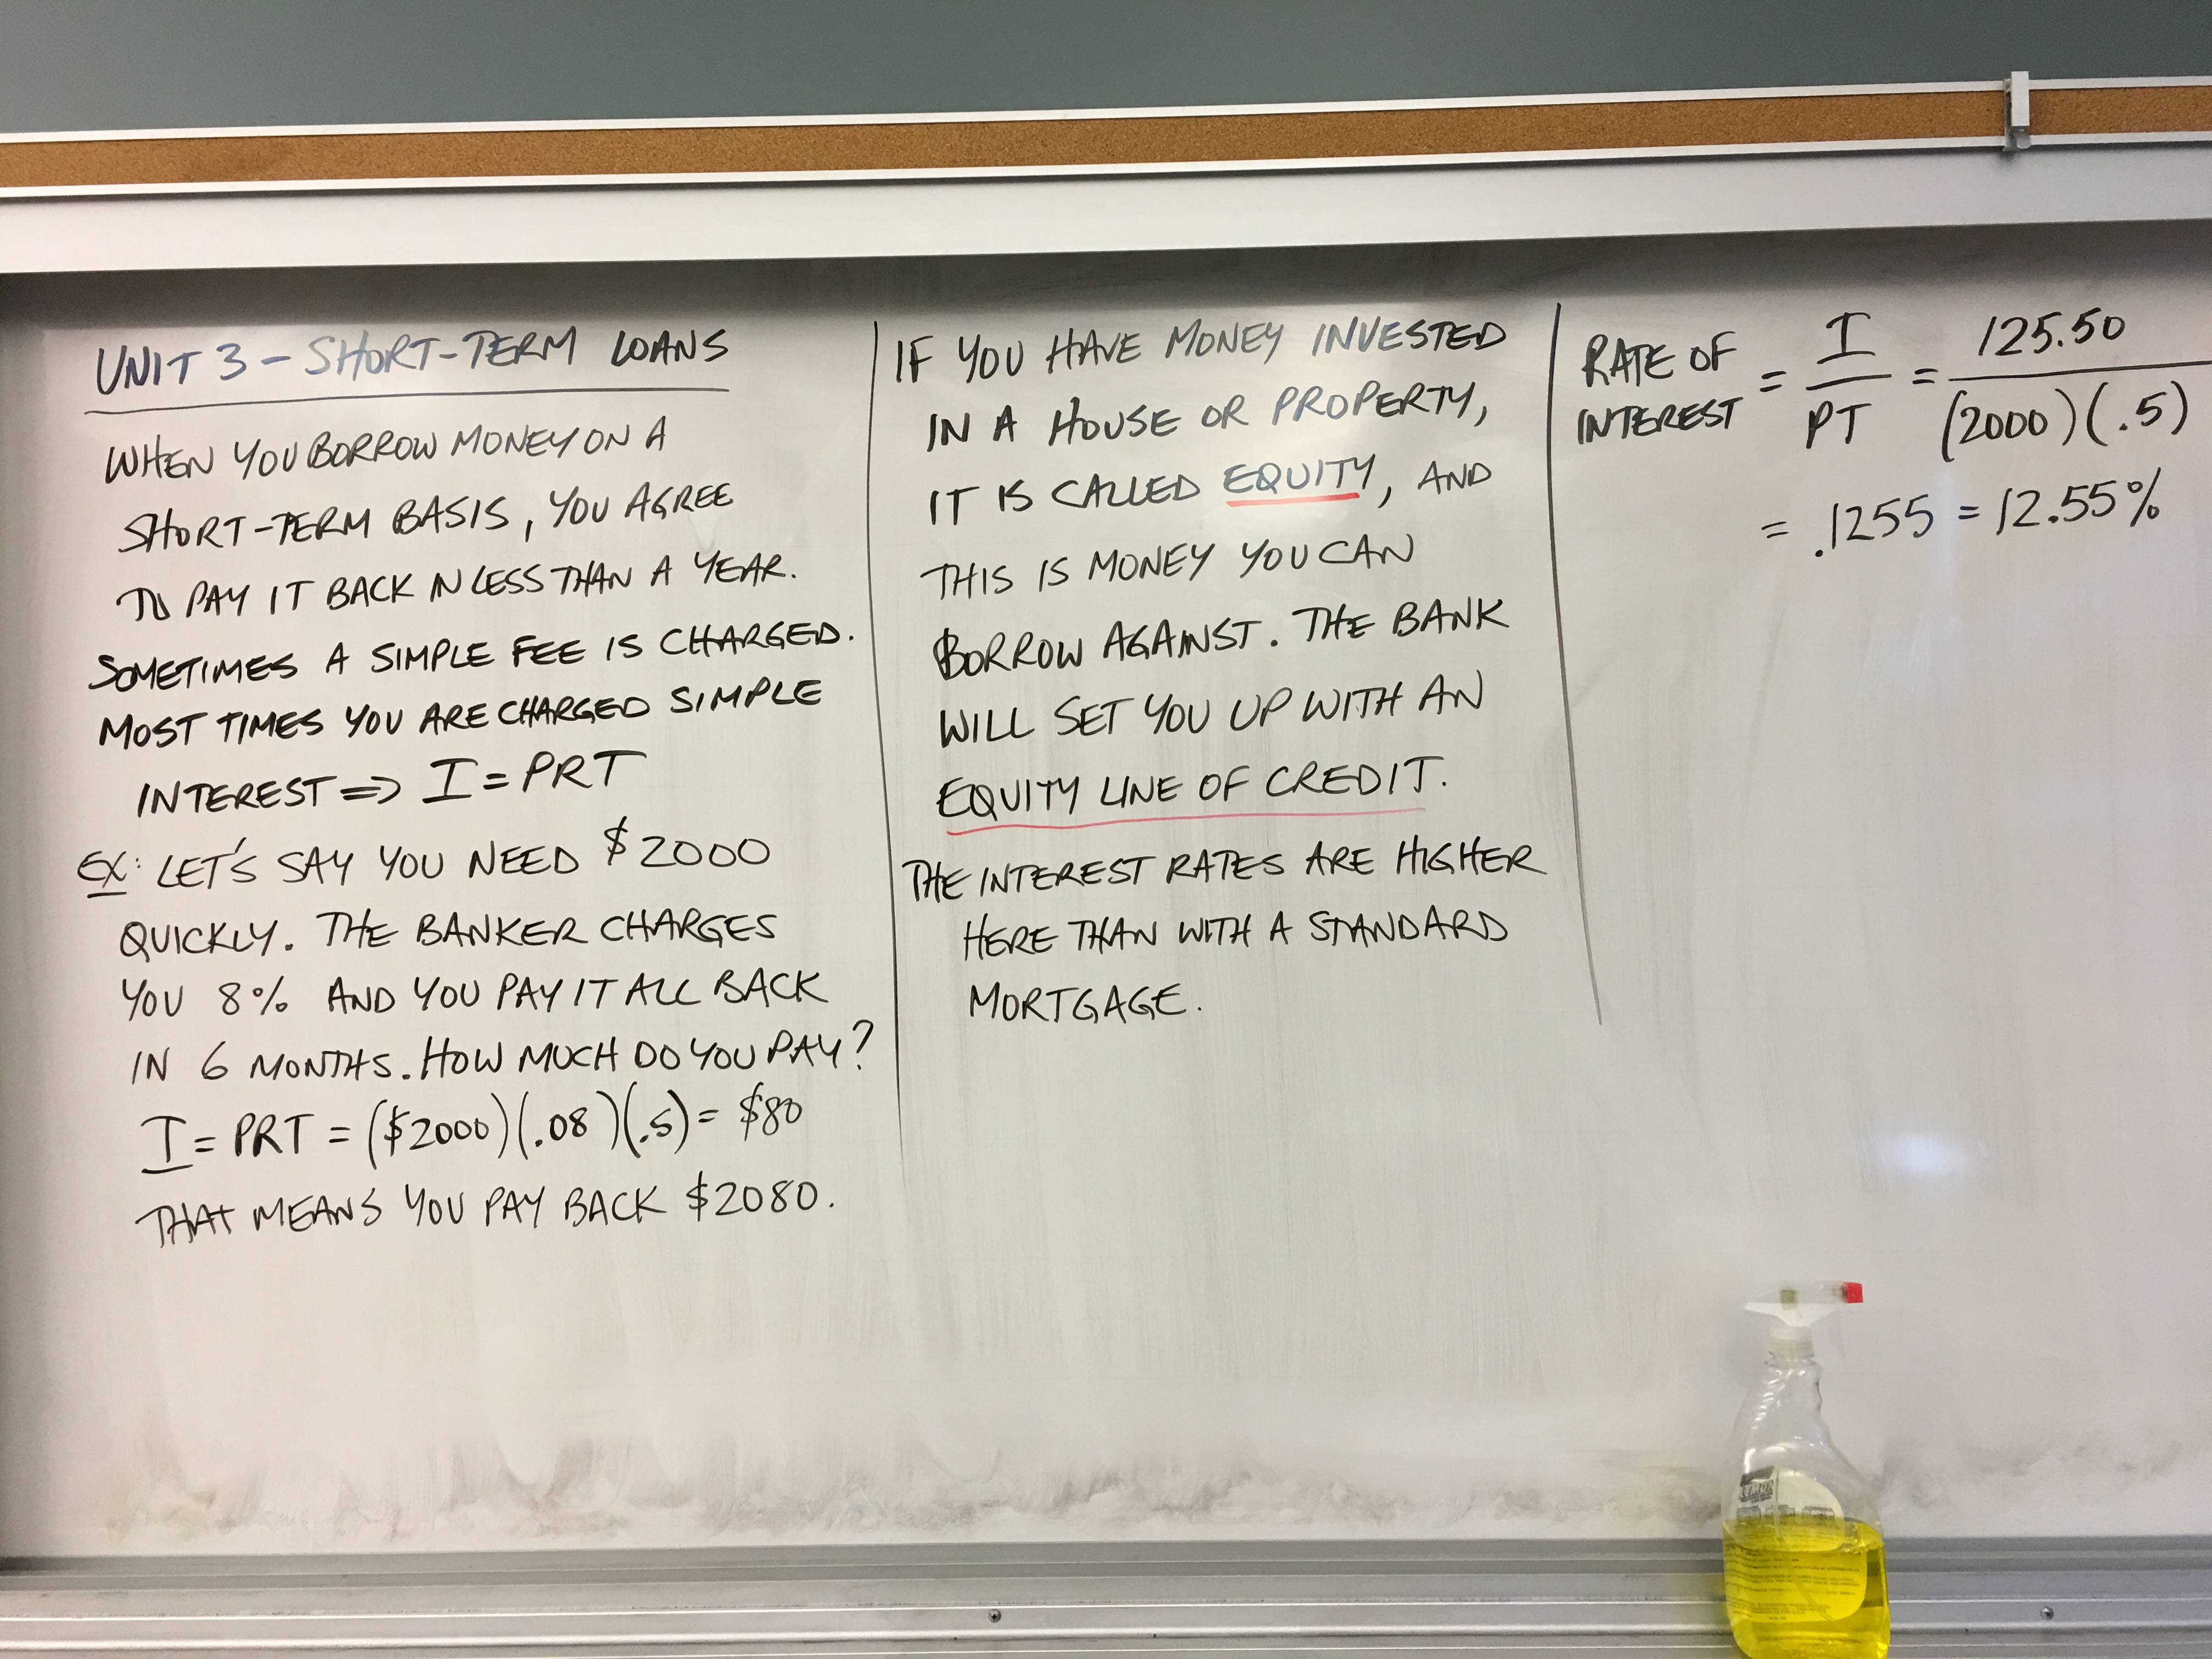 UNIT 3 - SHORT-TERM LOANS
WHEN YOU BORROW MONEY ON A
SHORT-TERM BASIS, YOU AGREE
TO PAY IT BACK IN LESS THAN A YEAR.
SOMETIMES A SIMPLE FEE IS CHARGED.
MOST TIMES YOU ARE CHARGED SIMPLE
INTEREST => I = PRT
EX: LET'S SAY YOU NEED $2000
QUICKLY. THE BANKER CHARGES
YOU 8% AND YOU PAY IT ALL BACK
IN 6 MONTHS. HOW MUCH DO YOU PAY?
I = PRT = ($2000)(.08)(.5) = $80
THAT MEANS YOU PAY BACK $2080.
IF YOU HAVE MONEY INVESTED
IN A HOUSE OR PROPERTY,
IT IS CALLED EQUITY, AND
THIS IS MONEY YOU CAN
BORROW AGAINST. THE BANK
WILL SET YOU UP WITH AN
EQUITY LINE OF CREDIT.
THE INTEREST RATES ARE HIGHER
HERE THAN WITH A STANDARD
MORTGAGE.
RATE OF INTEREST = I / PT = 125.50 / (2000)(.5)
= .1255 = 12.55%